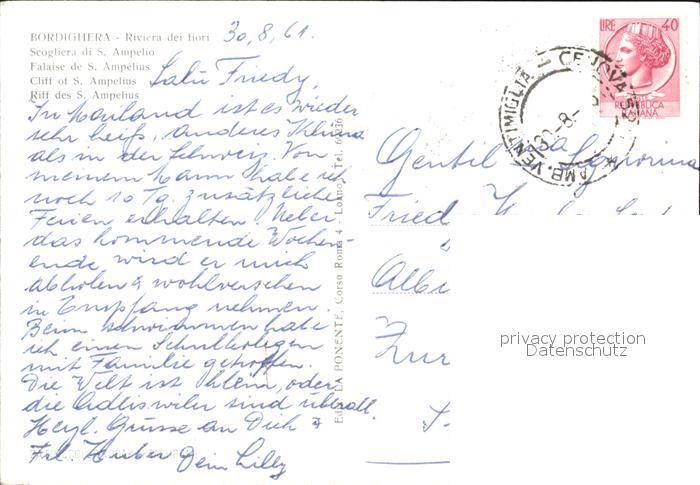 BORDIGHERA - Riviera dei fiori
Scogliera di S. Ampelio
Falaise de S. Ampélius
Cliff of S. Ampelius
Riff des S. Ampelius
30.8.61.
Salü Friedy,
In Mailand ist es wieder
sehr heiss, anderes Klima
als in der Schweiz. Von
meinem Mann habe ich
noch 10 Tg. zusätzliche
Ferien erhalten. Ueber
das kommende Wochen-
ende wird er mich
abholen & wohlversehen
in Empfang nehmen.
Beim schwimmen habe
ich einen Schulkollegen
mit Familie getroffen.
Die Welt ist klein, oder
die Adliswiler sind überall.
Herzl. Grüsse an Dich &
Frl. Huber Dein Lilly
Ediz. LA PONENTE, Corso Roma 4 - Loano - Tel.
LIRE 40
REPUBBLICA
ITALIANA
AMB. VENTIMIGLIA - GENOVA
30-8-
Gentil Signorina
Fried
Albi
Zur
privacy protection
Datenschutz